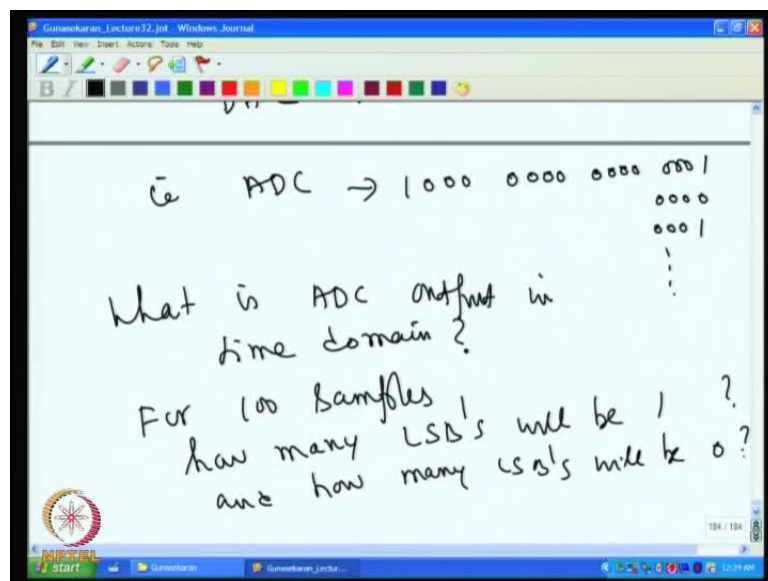 Gunasekaran_Lecture32.jnt - Windows Journal
File Edit View Insert Actions Tools Help
B I
ie ADC → 1000 0000 0000 0001
0000
0001
What is ADC output in
time domain ?
For 100 samples,
how many LSB's will be 1 ?
and how many LSB's will be 0 ?
184 / 184
NPTEL
start Gunasekaran Gunasekaran_Lectur... 12:29 AM